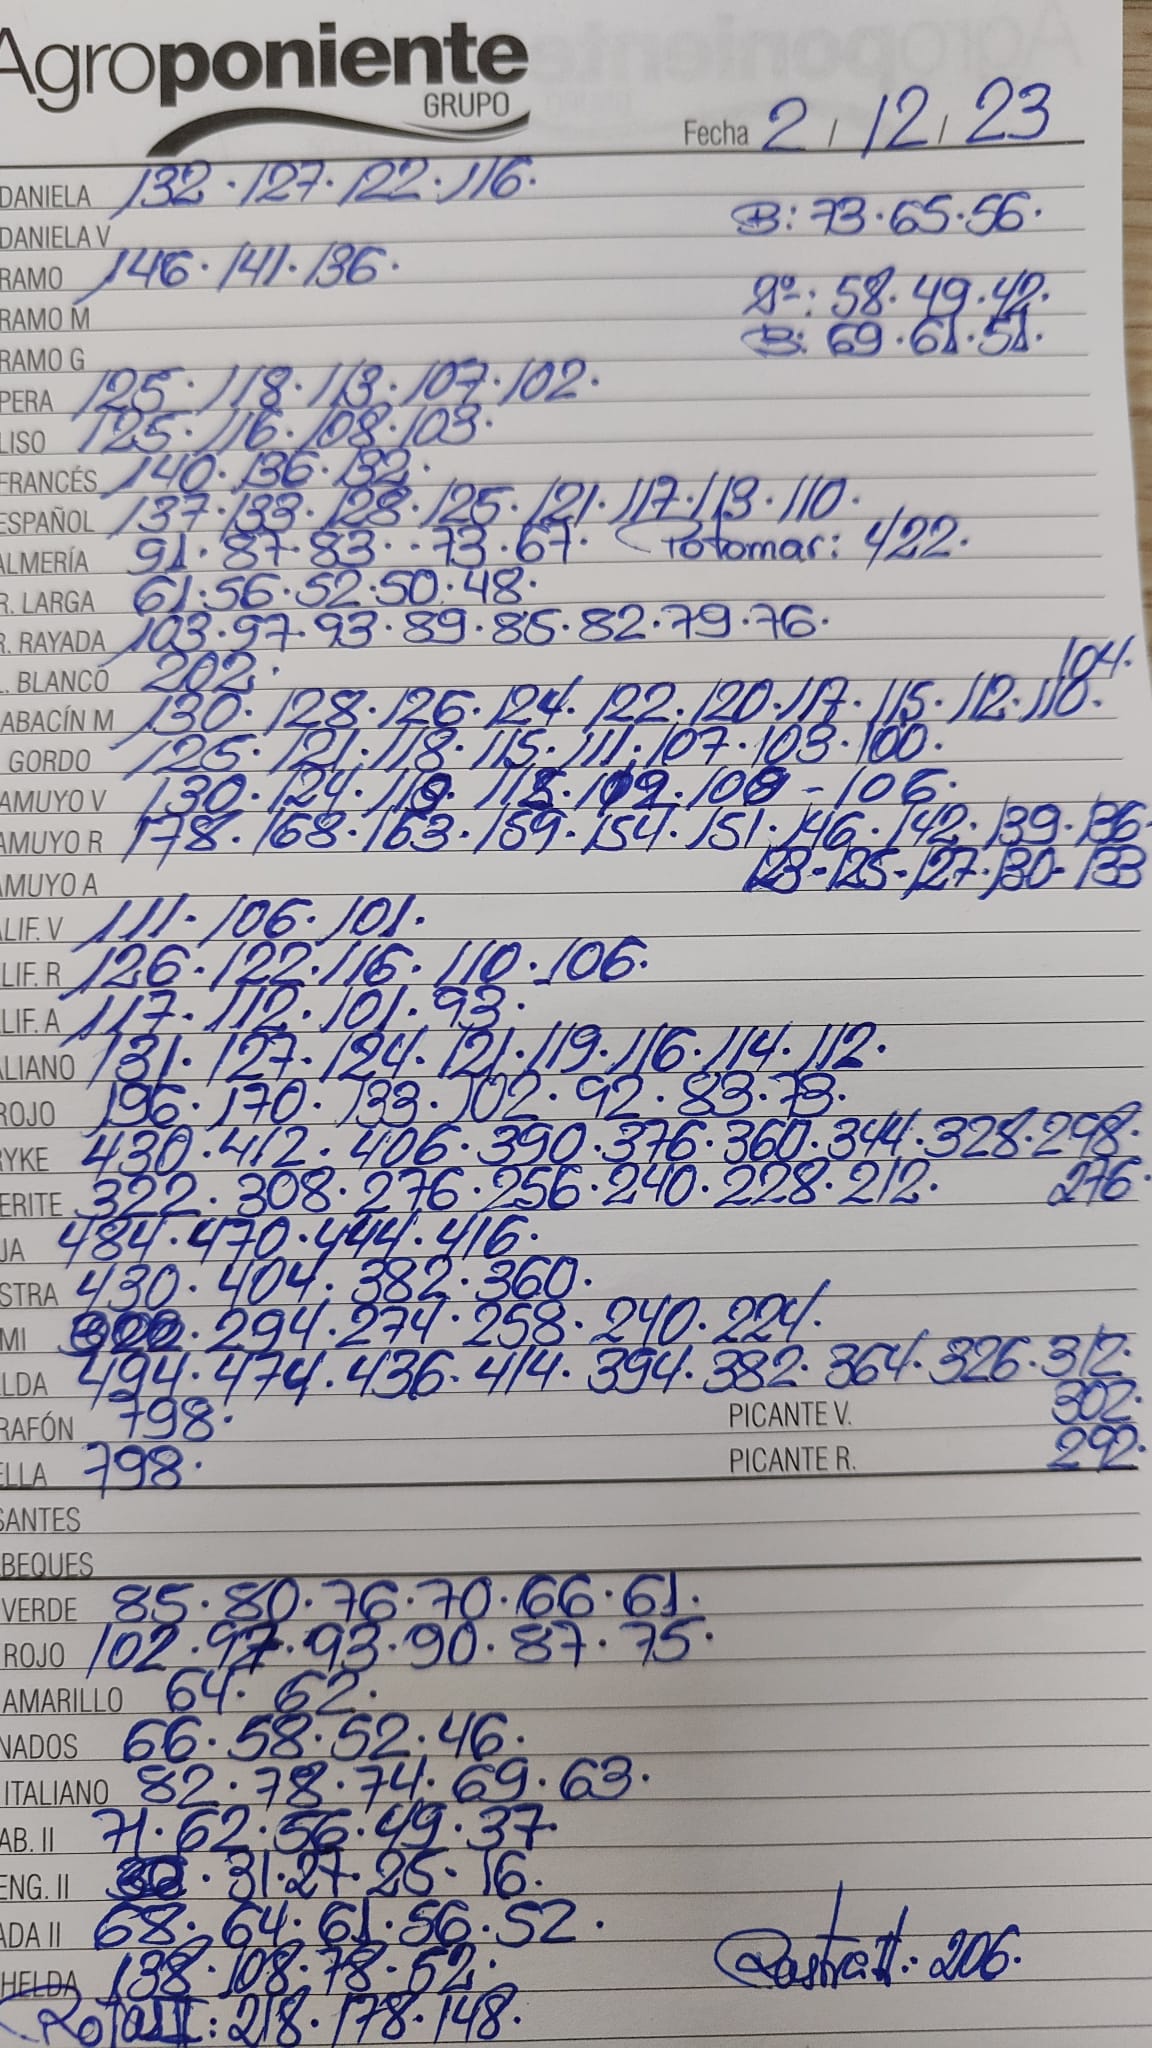 Agroponiente
GRUPO
Fecha 2 / 12 / 23
DANIELA 132 · 127 · 122 · 116 ·
DANIELA V B: 73 · 65 · 56 ·
RAMO 146 · 141 · 136 ·
RAMO M 2ª: 58 · 49 · 42 ·
RAMO G B: 69 · 61 · 51 ·
PERA 125 · 118 · 113 · 107 · 102 ·
LISO 125 · 116 · 108 · 103 ·
FRANCÉS 140 · 136 · 132 ·
ESPAÑOL 137 · 133 · 128 · 125 · 121 · 117 · 113 · 110 ·
ALMERÍA 91 · 87 · 83 · · 73 · 67 · Potomar: 422 ·
R. LARGA 61 · 56 · 52 · 50 · 48 ·
R. RAYADA 103 · 97 · 93 · 89 · 85 · 82 · 79 · 76 ·
. BLANCO 202 · 104 ·
ABACÍN M 130 · 128 · 126 · 124 · 122 · 120 · 117 · 115 · 112 · 110 ·
GORDO 125 · 121 · 118 · 115 · 111 · 107 · 103 · 100 ·
AMUYO V 130 · 124 · 106 ·
AMUYO R 178 · 168 · 163 · 159 · 154 · 151 · 146 · 142 · 139 · 136 ·
AMUYO A 123 - 125 - 127 · 130 - 133
LIF. V 111 · 106 · 101 ·
LIF. R 126 · 122 · 116 · 110 · 106 ·
LIF. A 117 · 112 · 101 · 93 ·
LIANO 131 · 127 · 124 · 121 · 119 · 116 · 114 · 112 ·
ROJO 196 · 170 · 133 · 102 · 92 · 83 · 73 ·
RYKE 430 · 412 · 406 · 390 · 376 · 360 · 344 · 328 · 298 ·
ERITE 322 · 308 · 276 · 256 · 240 · 228 · 212 · 276 ·
JA 484 · 470 · 444 · 416 ·
STRA 430 · 404 · 382 · 360 ·
MI · 294 · 274 · 258 · 240 · 224 ·
LDA 494 · 474 · 436 · 414 · 394 · 382 · 364 · 326 · 312 ·
RAFÓN 798 · PICANTE V. 302 ·
ELLA 798 · PICANTE R. 292 ·
SANTES
BEQUES
VERDE 85 · 80 · 76 · 70 · 66 · 61 ·
ROJO 102 · 97 · 93 · 90 · 87 · 75 ·
AMARILLO 64 · 62 ·
NADOS 66 · 58 · 52 · 46 ·
ITALIANO 82 · 78 · 74 · 69 · 63 ·
AB. II 71 · 62 · 56 · 49 · 37 ·
ENG. II · 31 · 27 · 25 · 16 ·
ADA II 68 · 64 · 61 · 56 · 52 ·
HELDA 138 · 108 · 78 · 52 · RastraII: 206 ·
: 218 · 178 · 148 ·